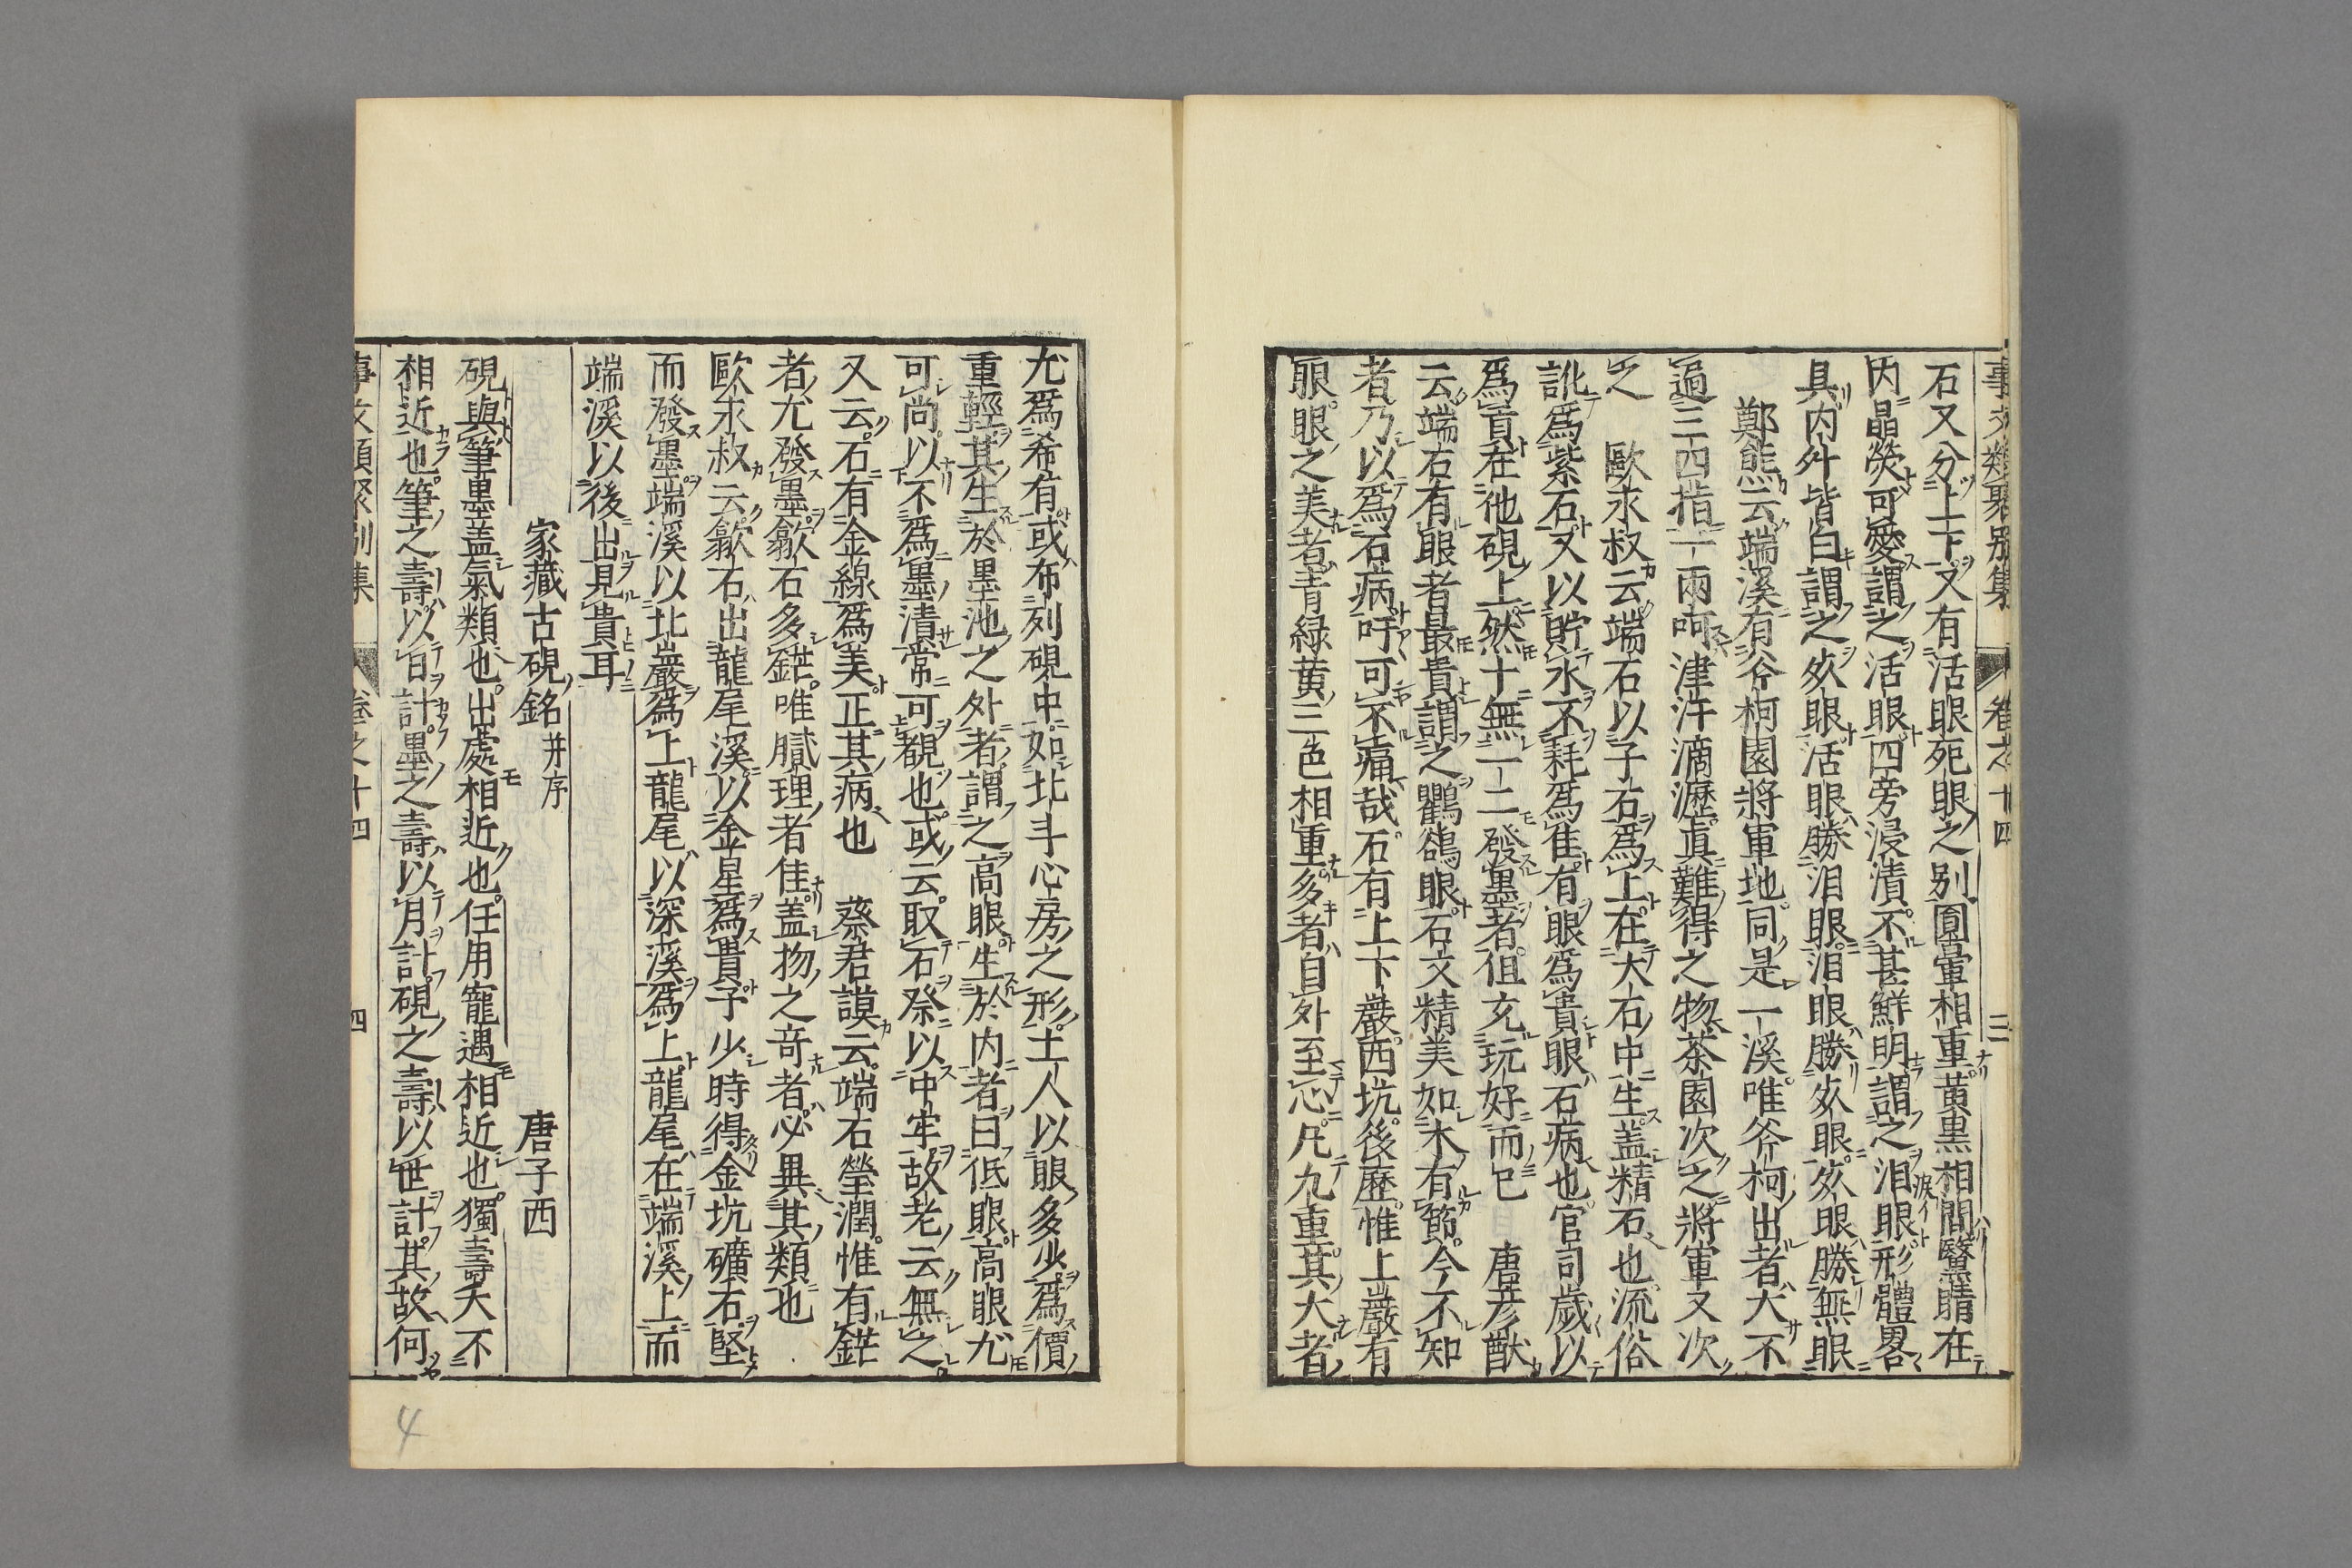 事文類聚別集 卷之十四 三
石又分上下又有活眼死眼之别圓暈相重黄黒相間黳睛在
内晶熒可愛謂之活眼四旁浸漬不甚鮮明謂之泪眼形體畧
具内外皆白謂之死眼活眼勝泪眼泪眼勝死眼死眼勝無眼
鄭熊云端溪有斧柯園將軍地同是一溪唯斧柯出者大不
過三四指一兩呵津汗滴瀝真難得之物茶園次之將軍又次
之 歐永叔云端石以子石爲上在大石中生盖精石也流俗
訛爲紫石又以貯水不耗爲佳有眼爲貴眼石病也官司歲以
爲貢在他硯上然十無一二發墨者但充玩好而已 唐彦猷
云端石有眼者最貴謂之鸜鵒眼石文精美如木有節今不知
者乃以爲石病吁可不痛哉石有上下巖西坑後歷惟上巖有
眼眼之美者青緑黄三色相重多者自外至心凡九重其大者
尤爲希有或布列硯中如北斗心房之形土人以眼多少爲價
重輕其生於墨池之外者謂之高眼生於内者曰低眼高眼尤
可尚以不爲墨漬常可覩也或云取石祭以中牢故老云無之
又云石有金線爲美正其病也 蔡君謨云端石瑩潤惟有鋩
者尤發墨歙石多鋩唯膩理者佳盖物之奇者必異其類也
歐永叔云歙石出龍尾溪以金星爲貴予少時得金坑礦石堅
而發墨端溪以北巖爲上龍尾以深溪爲上龍尾在端溪上而
端溪以後出見貴耳
家藏古硯銘 并序 唐子西
硯與筆墨盖氣類也出處相近也任用寵遇相近也獨壽夭不
相近也筆之壽以日計墨之壽以月計硯之壽以世計其故何
事文類聚別集 卷之十四 四
4